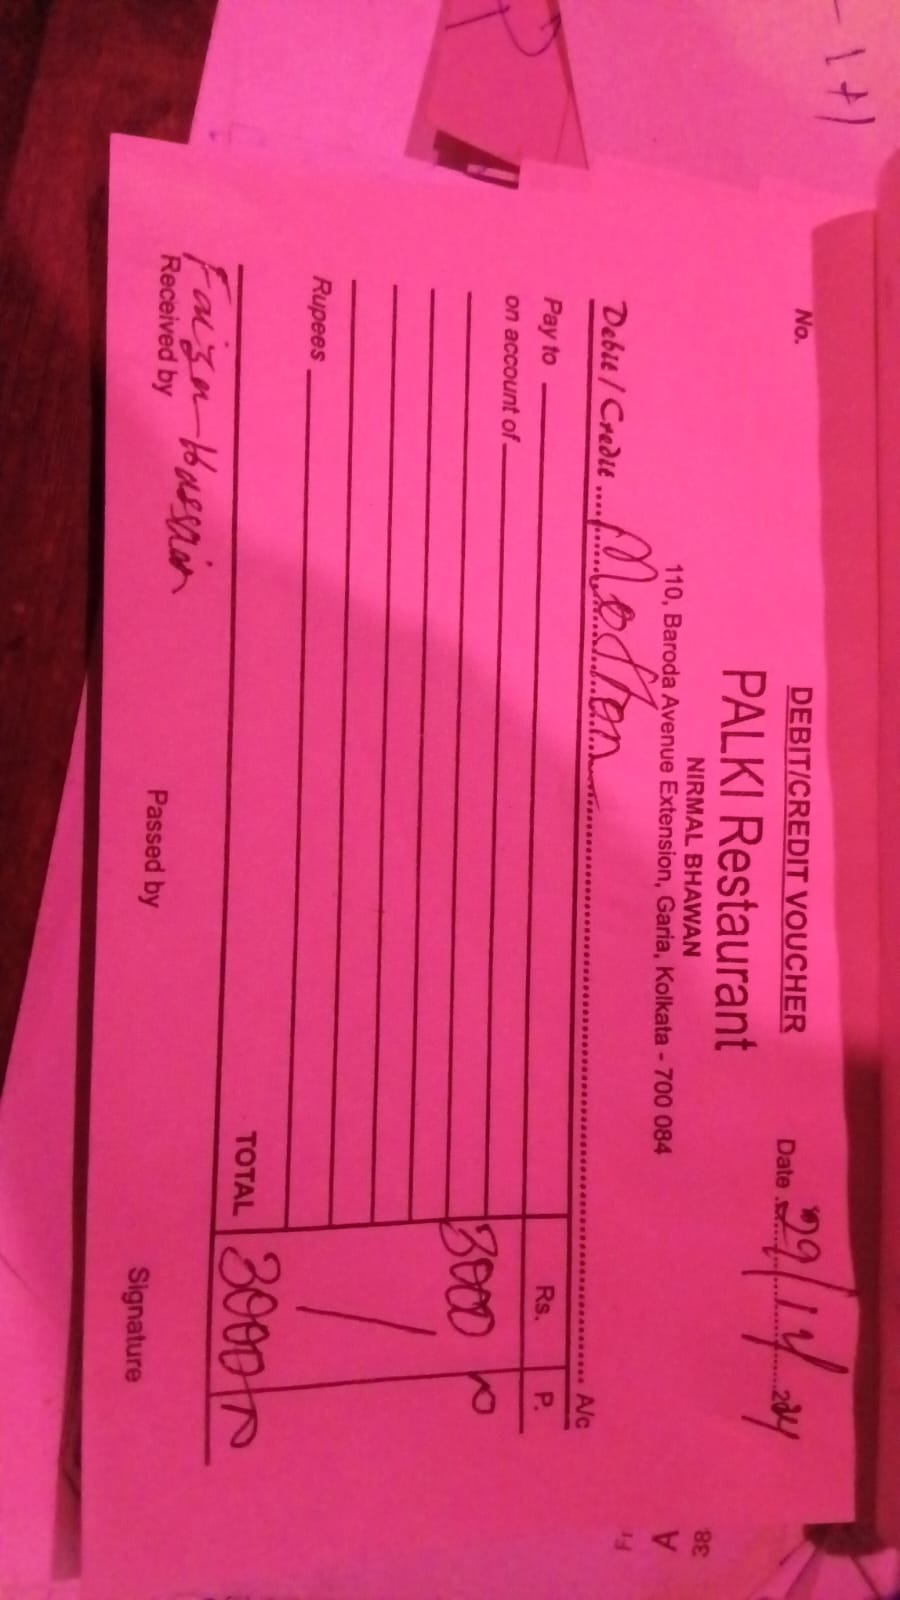 DEBIT/CREDIT VOUCHER
No.
Date 29/12/2024
PALKI Restaurant
NIRMAL BHAWAN
110, Baroda Avenue Extension, Garia, Kolkata - 700 084
Debit / Credit Motton A/c
Rs. P.
Pay to
on account of
3000
Rupees
TOTAL 3000
Faizan Hussain
Received by Passed by Signature
38
A